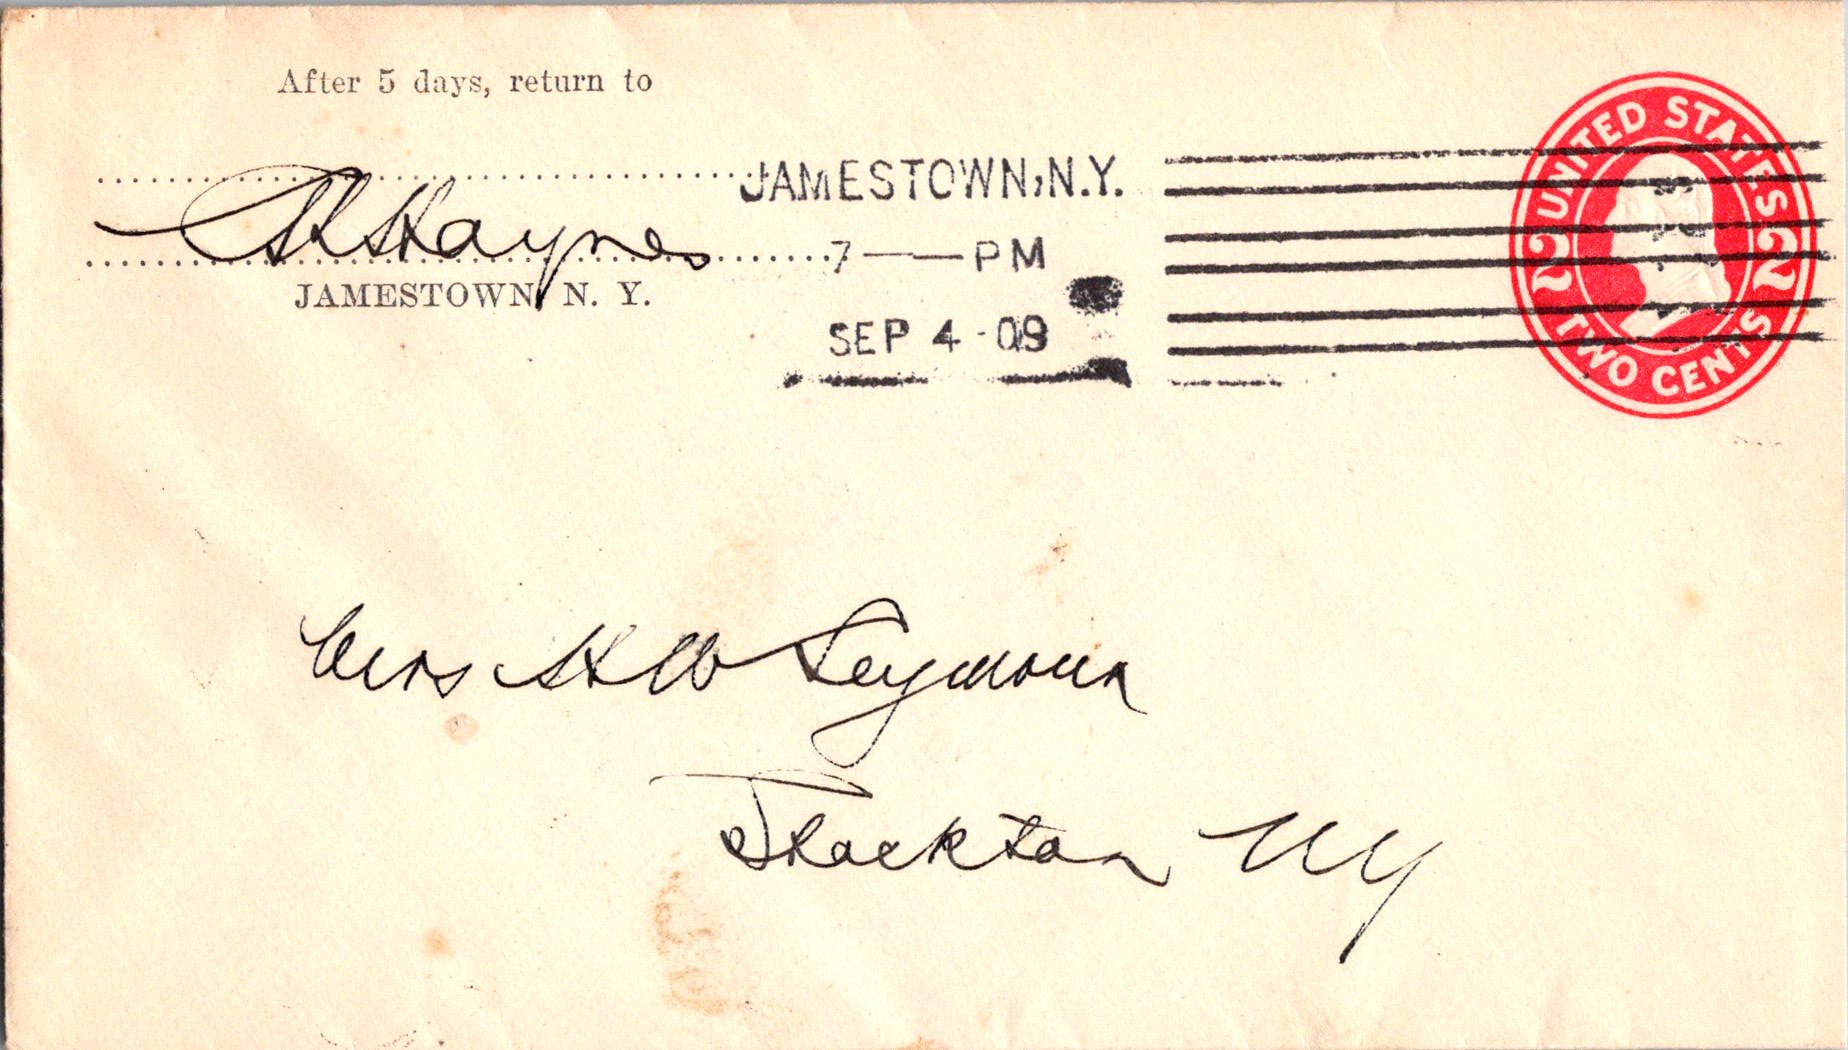 After 5 days, return to
Haynes
JAMESTOWN, N. Y.
JAMESTOWN, N.Y.
7 — PM
SEP 4 - 09
UNITED STATES
2 2
TWO CENTS
Mrs H W Seymour
Stockton NY